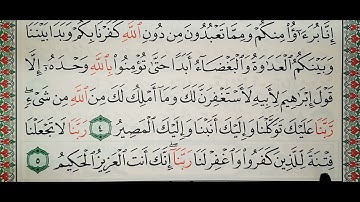 إِنَّا بُرَءَٰٓؤُا۟ مِنكُمْ وَمِمَّا تَعْبُدُونَ مِن دُونِ ٱللَّهِ كَفَرْنَا بِكُمْ وَبَدَا بَيْنَنَا
وَبَيْنَكُمُ ٱلْعَدَٰوَةُ وَٱلْبَغْضَآءُ أَبَدًا حَتَّىٰ تُؤْمِنُوا۟ بِٱللَّهِ وَحْدَهُۥٓ إِلَّا
قَوْلَ إِبْرَٰهِيمَ لِأَبِيهِ لَأَسْتَغْفِرَنَّ لَكَ وَمَآ أَمْلِكُ لَكَ مِنَ ٱللَّهِ مِن شَىْءٍ ۖ
رَّبَّنَا عَلَيْكَ تَوَكَّلْنَا وَإِلَيْكَ أَنَبْنَا وَإِلَيْكَ ٱلْمَصِيرُ ٤ رَبَّنَا لَا تَجْعَلْنَا
فِتْنَةً لِّلَّذِينَ كَفَرُوا۟ وَٱغْفِرْ لَنَا رَبَّنَآ ۖ إِنَّكَ أَنتَ ٱلْعَزِيزُ ٱلْحَكِيمُ ٥